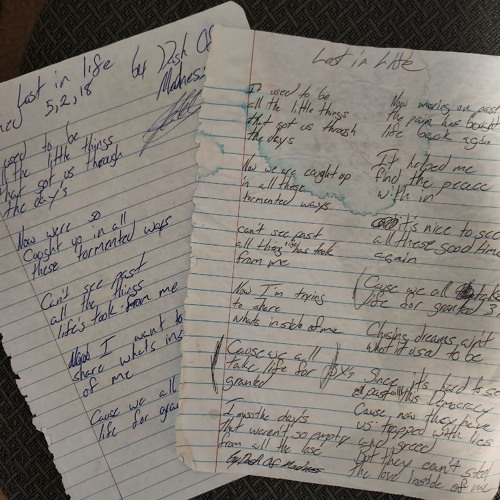 Lost in life by Dash Of
Madness
5,2,18
used to be
all the little things
that got us through
the day's
Now were so
Caught up in all
these tormented ways
Can't see past
all the things
life's took from me
I want to
share whats ins
of me
Cause we all
life for gran
Lost in Life
It used to be
all the little things
that got us through
the days
Now we are caught up
in all these
tormented ways
can't see past
all things has took
from me
Now I'm trying
to share
whats inside of me
(Cause we all
take life for
granted
) x
I miss the days
that weren't so empty
from all the lose
by Dash Of Madness
Now moving on past
the pain has bought
life back again
It helped me
find the peace
with in
it's nice to see
all these good time
again
(Cause we all take
life for granted
Chasing dreams ain't
what it used to be
Since it's hard to se
past this
Cause now they have
us trapped with lies
and greed
but they can't stop
the love inside of me